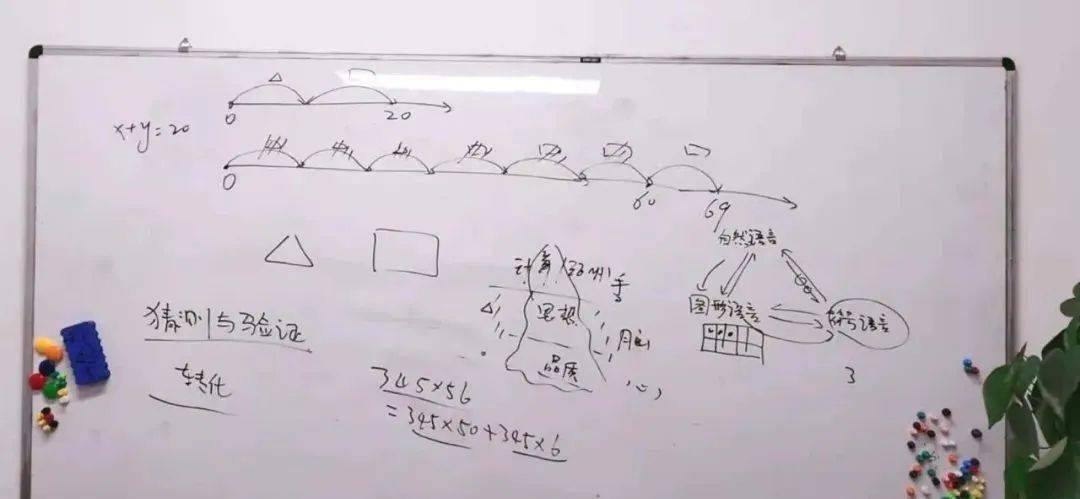 0 20
x+y=20
0 60 69
自然语言
计算
手
图形语言
符号语言
思想
脑
品质
心
3
猜测与验证
转化
345×56
=345×50+345×6